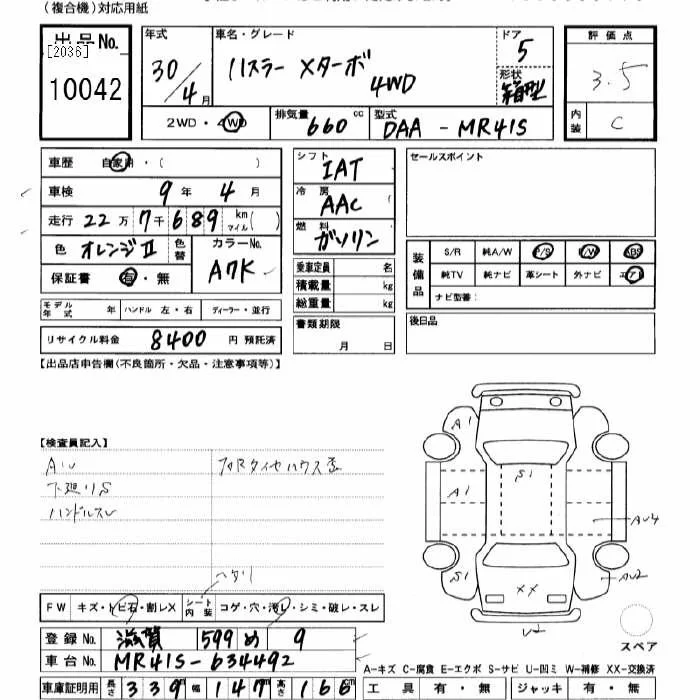 (複合機)対応用紙
出品No.
[2036]
10042
年式
30/4月
車名・グレード
ハスラー Xターボ
4WD
ドア
5
形状
箱型
評価点
3.5
内装
C
2WD・4WD
排気量
660 cc
型式
DAA-MR41S
車歴 自家用・( )
車検 9年 4月
走行 22万 7千689 km マイル( )
色 オレンジⅡ
色替
カラーNo.
A7K
保証書 有・無
モデル年式 年 ハンドル 左・右 ディーラー・並行
リサイクル料金 8400 円 預託済
シフト
IAT
冷房
AAC
燃料
ガソリン
乗車定員 名
積載量 kg
総重量 kg
書類期限
月 日
セールスポイント
装備品
S/R 純A/W P/S P/W ABS
純TV 純ナビ 革シート 外ナビ エアB
ナビ型番:
後日品
【出品店申告欄(不良箇所・欠品・注意事項等)】
【検査員記入】
AU
下廻りS
ハンドルスレ
ヘタリ
FW キズ・トビ石・割レX
シート内装 コゲ・穴・汚レ・シミ・破レ・スレ
登録No. 滋賀 599 め 9
車台No. MR41S-634492
車庫証明用 長さ 339 幅 147 高さ 166 cm
A1
S1
A1
AU4
S1
XX
AU2
U2
スペア
A-キズ C-腐食 E-エクボ S-サビ U-凹ミ W-補修 XX-交換済
工具 有・無 ジャッキ 有・無